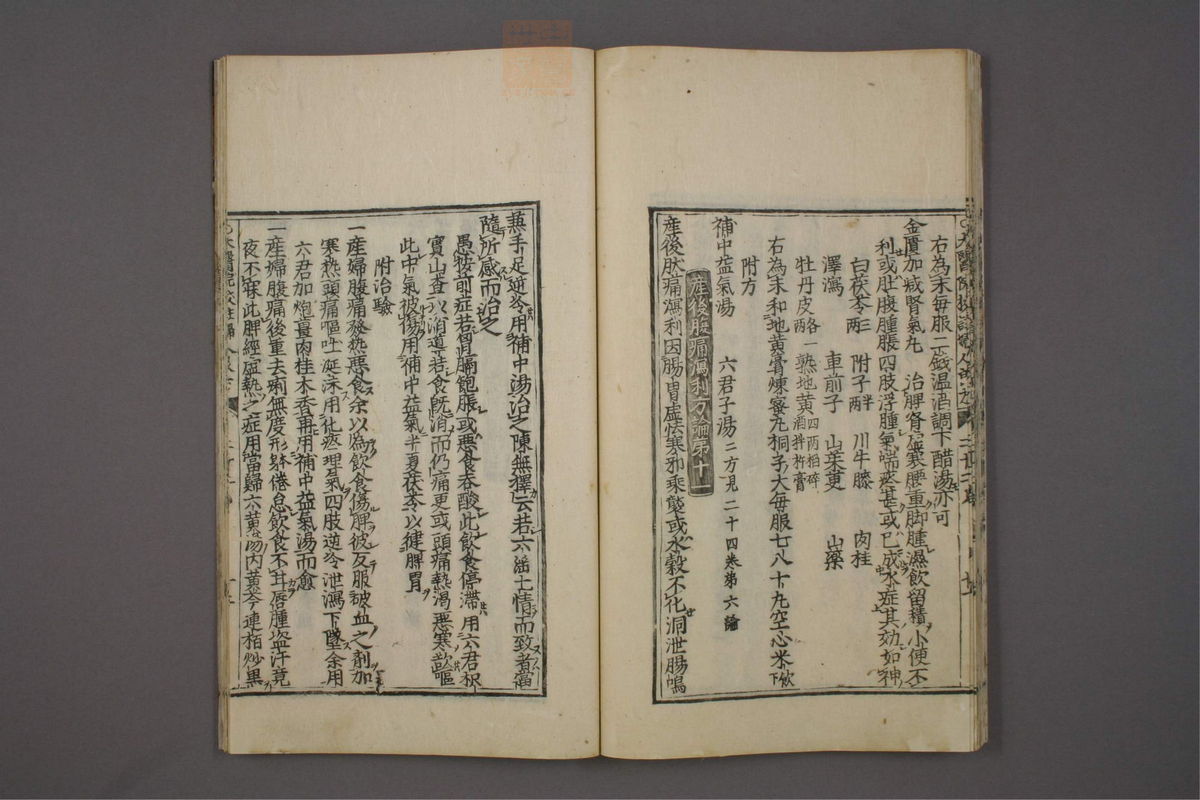 右為末每服二錢溫酒調下醋湯亦可
金匱加減腎氣丸　治脾腎虛寒腰重脚腫濕飲留積小便不
利或肚腹腫脹四肢浮腫氣喘痰甚或已成水症其効如神
白茯苓三兩　附子半兩　川牛膝　肉桂
澤瀉　車前子　山茱萸　山藥
牡丹皮各一兩　熟地黃四兩搗碎酒拌杵膏
右為末和地黃膏煉蜜丸桐子大每服七八十丸空心米飲下
附方
補中益氣湯　六君子湯二方見二十四卷第六論
産後腹痛瀉利方論第十一
産後腹痛瀉利因腸胃虛怯寒邪乘襲或水穀不化洞泄腸鳴
兼手足逆冷用補中湯治之陳無擇云若六淫七情而致者當
隨所感而治之
愚按前症若胷膈飽脹或惡食吞酸此飲食停滯用六君枳
實山査以消導若食旣消而仍痛更或頭痛熱渴惡寒欲嘔
此中氣被傷用補中益氣半夏茯苓以健脾胃
附治驗
一産婦腹痛發熱惡食余以為飲食傷脾彼反服破血之劑加
寒熱頭痛嘔吐涎沫用化痰理氣四肢逆冷泄瀉下墜余用
六君加炮薑肉桂木香再用補中益氣湯而愈
一産婦腹痛後重去痢無度形躰倦怠飲食不甘唇腫盗汗竟
夜不寐此脾經虛熱之症用當歸六黃湯内黃芩連栢炒黒